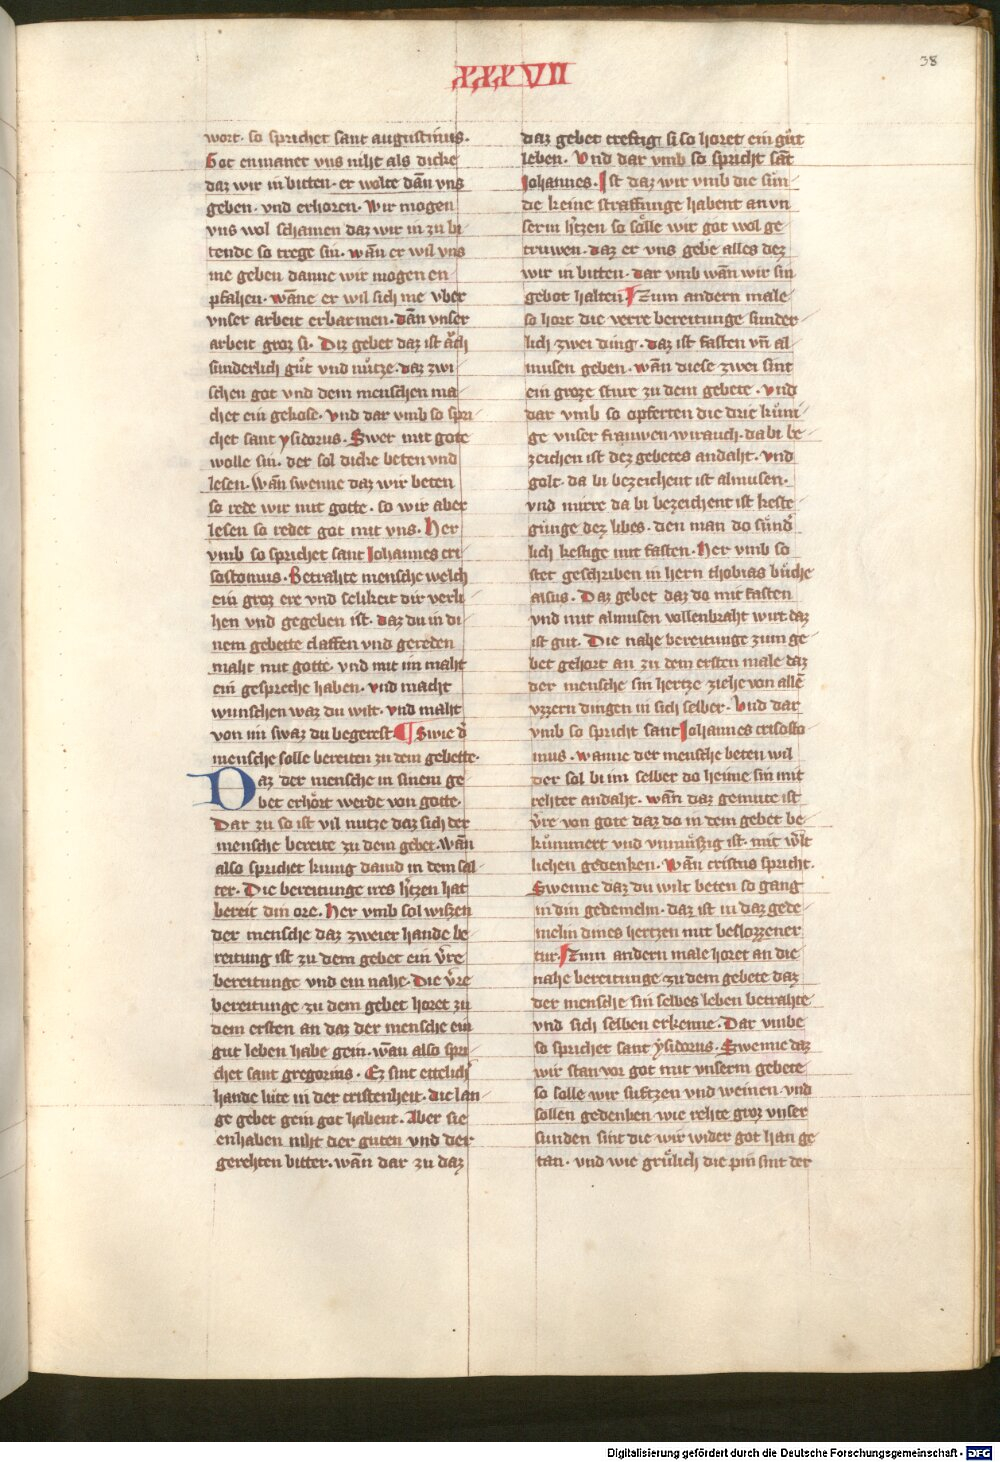 XXXVII
38
wort. so sprichet sant augustinus.
Got enmanet vns niht als dicke
daz wir in bitten. er wolte dan̄ vns
geben. vnd erhoren. Wir mogen
vns wol schamen daz wir in zu bi
tende so trege sin. wan̄ er wil vns
me geben danne wir mogen en
pfahen. wan̄e er wil sich me vber
vnser arbeit erbarmen. dan̄ vnser
arbeit groz si. Diz gebet daz ist auͦch
sunderlich guͦt vnd nuͤtze. daz zwi
schen got vnd dem menschen ma
chet ein gekose. vnd dar vmb so spri
chet sant ysidorus. Swer mit gote
wolle sin. der sol dicke beten vnd
lesen. Wan̄ swenne daz wir beten
so rede wir mit gotte. so wir aber
lesen so redet got mit vns. Her
vmb so sprichet sant Johannes cri
sostomus. Betrahte mensche welch
ein groz ere vnd selikeit dir verli
hen vnd gegeben ist. daz du in di
nem gebette claffen vnd gereden
maht mit gotte. vnd mit im maht
ein gespreche haben. vnd macht
wunschen waz du wilt. vnd maht
von im swaz du begerest ¶ Swie d'
mensche solle bereiten zu dem gebette.
Daz der mensche in sinem ge
bet erhoͤrt werde von gotte.
Dar zu so ist vil nutze daz sich der
mensche bereite zu dem gebet. wan̄
also sprichet kunig dauid in dem sal
ter. Die bereitunge ires h'tzen hat
bereit din ore. Her vmb sol wiszen
der mensche daz zweier hande be
reitung ist zu dem gebet ein v're
bereitunge vnd ein nahe. Die v're
bereitunge zu dem gebet horet zu
dem ersten an daz der mensche ein
gut leben habe gein. wan also spri
chet sant gregorius. Ez sint ettelich'
hande lute in der cristenheit. die lan
ge gebet gein got habent. Aber sie
enhaben niht der guten vnd der
gerehten bitter. wan̄ dar zu daz
daz gebet creftig si so horet ein guͦt
leben. Vnd dar vmb so spricht san̄t
Johannes. Ist daz wir vmb die sun
de keine straffunge habent an vn
serm h'tzen so soͤlle wir got wol ge
truwen. daz er vns gebe alles dez
wir in bitten. dar vmb wan̄ wir sin
gebot halten Zum andern male
so hort die verre bereitunge sunder
lich zwei ding. daz ist fasten vn̄ al
musen geben. wan̄ diese zwei sint
ein groze sture zu dem gebete. vnd
dar vmb so opferten die drie kuͤni
ge vnser frauwen wirauch. da bi be
zeichen ist dez gebetes andaht. vnd
golt. da bi bezeichent ist almusen.
vnd mirre da bi bezeichent ist keste
gunge dez libes. den man do suͤnd'
lich kestige mit fasten. Her vmb so
stet geschriben in hern thobias buͤche
alsus. Daz gebet daz do mit fasten
vnd mit almusen vollenbraht wirt daz
ist gut. Die nahe bereitunge zum ge
bet gehort an zu dem ersten male daz
der mensche sin hertze ziehe von allē
vzzern dingen in sich selber. Vnd dar
vmb so spricht sant Johannes crisosto
mus. wanne der mensche beten wil
der sol bi im selber do heime sin mit
rehter andaht. wan̄ daz gemute ist
v're von gote daz do in dem gebet be
kuͤmmert vnd vnmuͤszig ist. mit w'lt
lichen gedenken. wan̄ cristus spricht.
Swenne daz du wilt beten so gang
in din gedemeln. daz ist in daz gede
meln dines hertzen mit beslozzener
tur. Zum andern male horet an die
nahe bereitunge zu dem gebete daz
der mensche sin selbes leben betrahte
vnd sich selben erkenne. Dar vmbe
so sprichet sant ysidorus. Swenne daz
wir stan vor got mit vnserm gebete
so solle wir suftzen vnd weinen vnd
sollen gedenken wie rehte groz vnser
sunden sint die wir wider got han ge
tan. vnd wie gruͤlich die pin sint der
Digitalisierung gefördert durch die Deutsche Forschungsgemeinschaft - DFG